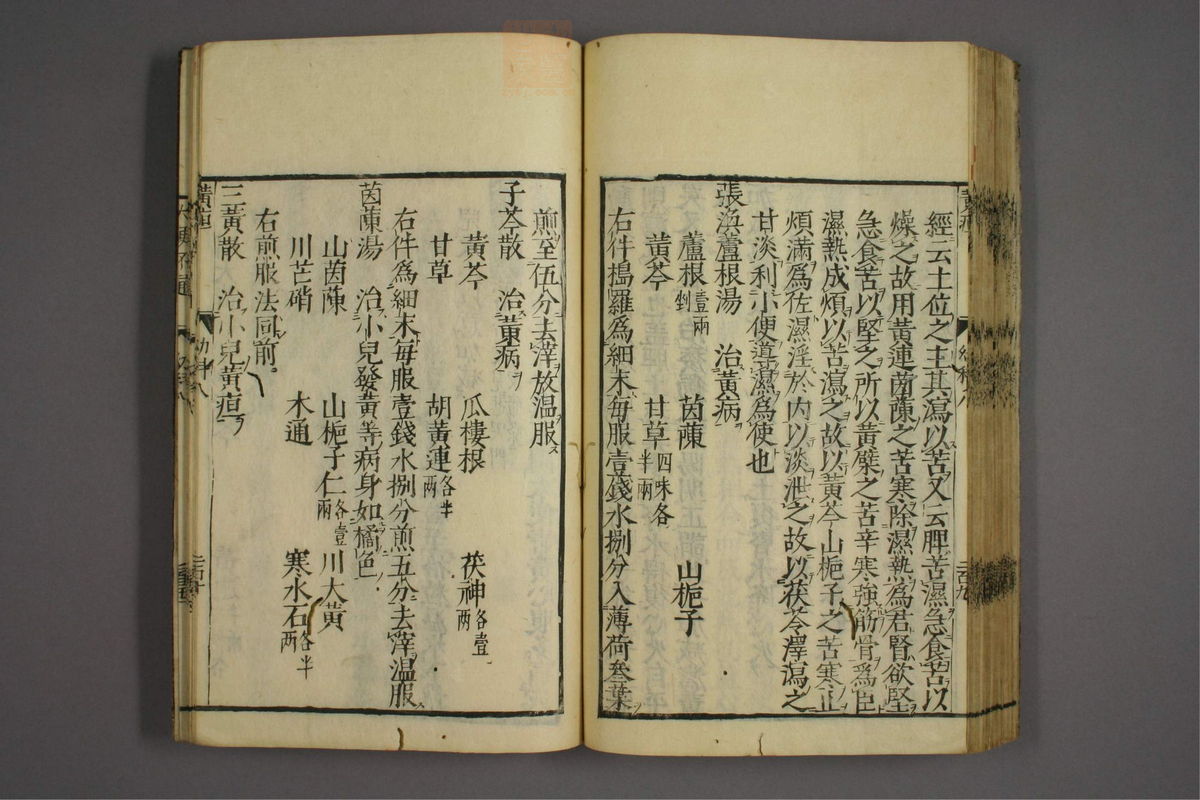 經云土位之主其瀉以苦又云脾苦濕急食苦以
燥之故用黃連茵蔯之苦寒除濕熱爲君腎欲堅
急食苦以堅之所以黃蘗之苦辛寒強筋骨爲臣
濕熱成煩以苦瀉之故以黃芩山梔子之苦寒止
煩滿爲佐濕淫於內以淡泄之故以茯苓澤瀉之
甘淡利小便導濕爲使也
張渙蘆根湯　治黃病
蘆根壹兩剉　茵蔯　山梔子
黃芩　甘草四味各半兩
右件搗羅爲細末每服壹錢水捌分入薄荷叄葉
煎至伍分去滓放溫服
子芩散　治黃病
黃芩　瓜樓根　茯神各壹兩
甘草　胡黃連各半兩
右件爲細末每服壹錢水捌分煎五分去滓溫服
茵蔯湯　治小兒發黃等病身如橘色
山茵蔯　山梔子仁各壹兩　川大黃
川芒硝　木通　寒水石各半兩
右煎服法同前
三黃散　治小兒黃疸
黃疸